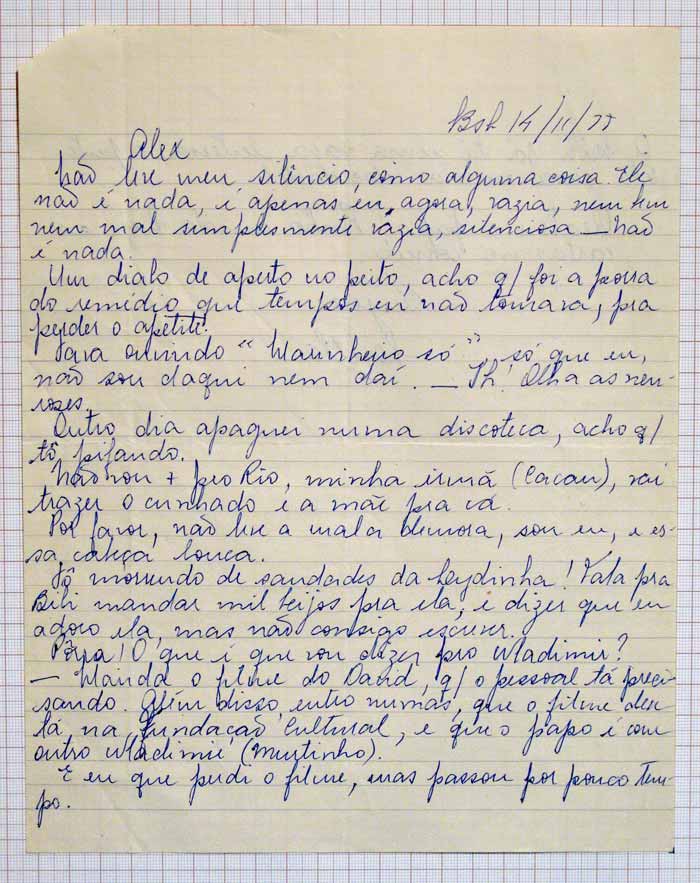 Bsb 14/11/77
Alex
Não leve meu silêncio, como alguma coisa. Ele
não é nada, é apenas eu, agora, vazia, nem bem
nem mal simplesmente vazia, silenciosa — não
é nada.
Um diabo de aperto no peito, acho q/ foi a porra
do remédio que tempos eu não tomava, pra
perder o apetite.
Tava ouvindo "Marinheiro só", só que eu,
não sou daqui nem daí. — Ih! Olha as neu-
roses.
Outro dia apaguei numa discoteca, acho q/
tô pifando.
Não vou + pro Rio, minha irmã (Cacau), vai
trazer o cunhado e a mãe pra cá.
Por favor, não leve a mal a demora, sou eu, e es-
sa cabeça louca.
Tô morrendo de saudades da Leydinha! Fala pra
Bibi mandar mil beijos pra ela, e dizer que eu
adoro ela, mas não consigo escrever.
Porra! O que é que vou dizer pro Wladimir?
— Manda o filme do David, q/ o pessoal tá preci-
sando. Além disso, entro numas, que o filme dele
tá, na Fundação Cultural, e que o papo é com
outro Wladimir (Murtinho).
E eu que pedi o filme, mas passou por pouco tem-
po.